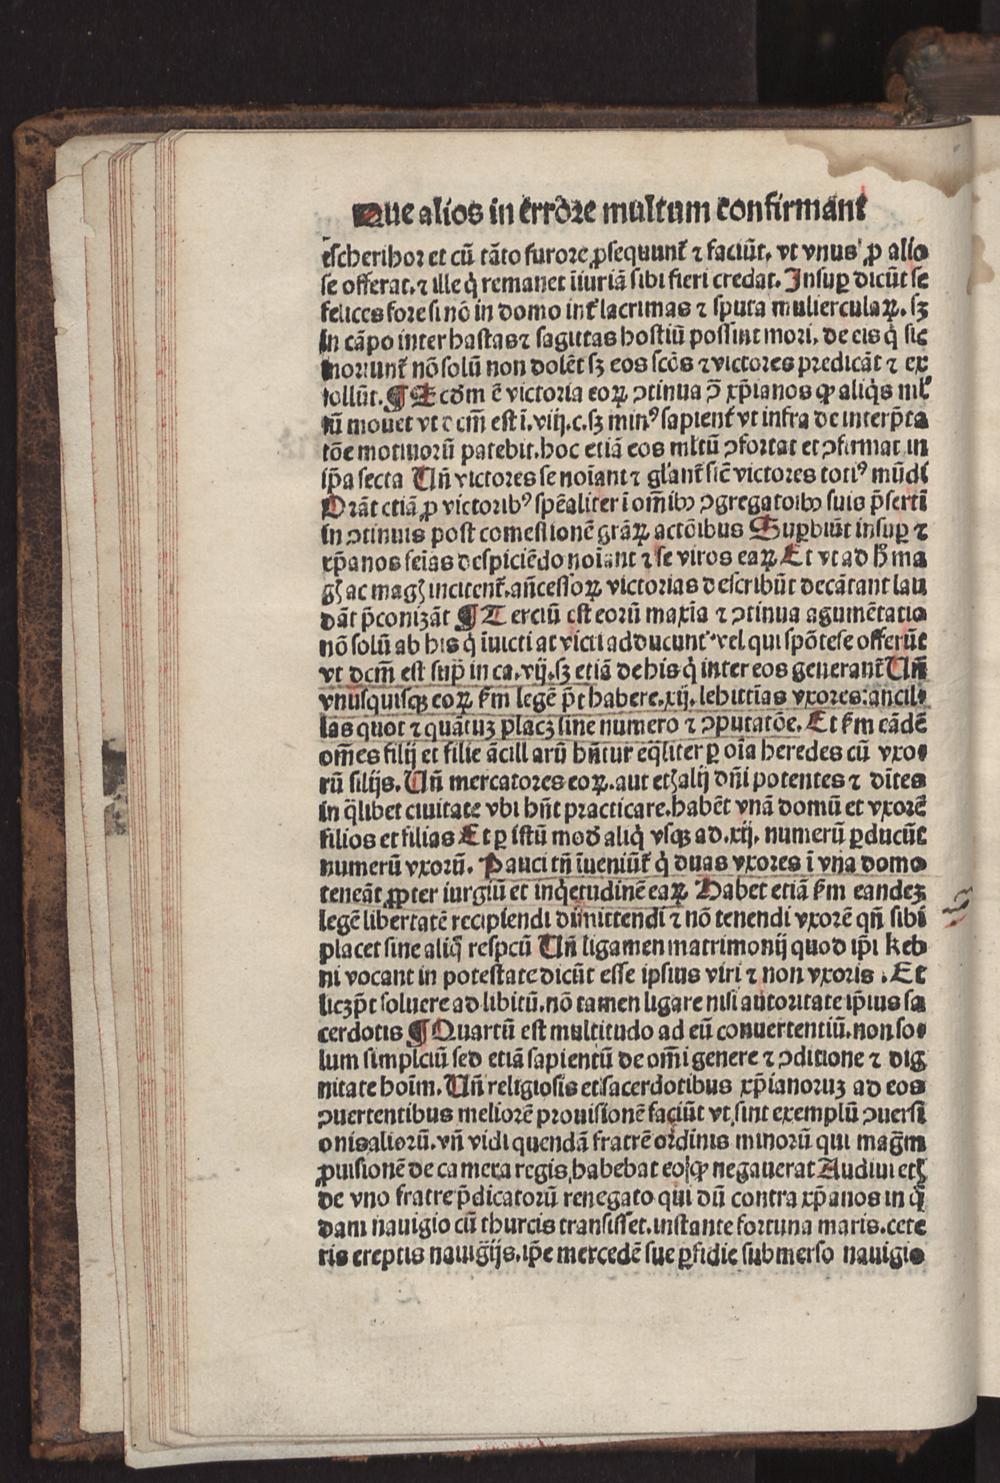 Que alios in errore multum confirmant̃
escherihor et cũ tãto furore ꝓsequunt̃ ⁊ faciũt, vt vnus ꝓ alio
se offerat, ⁊ ille q̇ remanet ĩiuriã sibi fieri credat. Insuꝑ dicũt se
felices fore si nõ in domo int̃ lacrimas ⁊ sputa muliercula℞. sꝫ
in cãpo inter hastas ⁊ sagittas hostiũ possint mori, de eis q̇ sic
moriunt̃ nõ solũ non dolẽt sꝫ eos scõs ⁊ victores predicãt ⁊ ex
tollũt. ¶ Secõm ẽ victoria eo℞ ↄtinua ↄ̃ xp̃ianos ꝙ aliq̇s ml̃
tũ mouet vt dcm̃ est ĩ. viij. c. sꝫ minꝰ sapient̃ vt infra de interp̃ta
tõe motiuorũ patebit. hoc etiã eos ml̃tũ ↄfortat et ↄfirmat in
ip̃a secta Vñ victores se noĩant ⁊ gl̃ant̃ sic̃ victores totiꝰ mũdi
Orãt etiã ꝓ victoribꝰ sp̃ealiter ĩ om̃ibꝰ ↄgregatõibꝰ suis p̃serti
in ↄtinuis post comestionẽ gr̃a℞ actõibus Suꝑbiũt insuꝑ ⁊
xp̃anos feĩas despiciẽdo noĩant ⁊ se viros ea℞ Et vt ad h̃ ma
gꝭ ac magꝭ incitent̃. añcesso℞ victorias describũt decãtant lau
dãt p̃conizãt ¶ Terciũ est eorũ maxĩa ⁊ ↄtinua agumẽtatio
nõ solũ ab his q̇ ĩuicti at victi adducunt̃ vel qui spõte se offerũt
vt dcm̃ est sup̃ in ca. vij. sꝫ etiã de his q̇ inter eos generant̃ Vñ
vnusquisqꝫ eo℞ ẜm legẽ p̃t habere. xij. lebittĩas vxores: ancil-
las quot ⁊ quãtuꝫ placꝫ sine numero ⁊ ↄputatõe. Et ẜm eãdẽ
om̃es filij et filie ãcillarũ hñtur eq̃liter ꝑ oĩa heredes cũ vxo-
rũ filijs. Vñ mercatores eo℞. aut etꝭ alij dñi potentes ⁊ dĩtes
in q̃libet ciuitate vbi hñt practicare. habẽt vnã domũ et vxorẽ
filios et filias Et ꝑ istũ modũ aliq̇ vsqꝫ ad. xij. numerũ ꝑducũt
numerũ vxorũ. Pauci tñ ĩueniũt̃ q̇ duas vxores ĩ vna domo
teneãt ꝓpter iurgiũ et inq̇etudinẽ ea℞ Habet etiã ẜm eandeꝫ
legẽ libertatẽ recipiendi dimittendi ⁊ nõ tenendi vxorẽ qñ sibi
placet sine aliq̃ respcũ Vñ ligamen matrimonij quod ip̃i keb
ni vocant in potestate dicũt esse ipsius viri ⁊ non vxoris. Et
licꝫ p̃t soluere ad libitũ. nõ tamen ligare nisi autoritate ip̃ius sa
cerdotis ¶ Quartũ est multitudo ad eũ conuertentiũ. non so-
lum simplciũ sed etiã sapientũ de om̃i genere ⁊ ↄditione ⁊ dig
nitate hoĩm. Vñ religiosis et sacerdotibus xp̃ianoruꝫ ad eos
ↄuertentibus meliorẽ prouisionẽ faciũt vt sint exemplũ ↄuersi
onis aliorũ. vñ vidi quendã fratrẽ ordinis minorũ qui mag̃m
ꝓuisionẽ de camera regis habebat eo ꝙ negauerat Audiui etꝭ
de vno fratre p̃dicatorũ renegato qui dũ contra xp̃anos in q̃
dam nauigio cũ thurcis transisset. instante fortuna maris. cete
ris ereptis nauig̃ijs. ip̃e mercedẽ sue ꝑfidie submerso nauigio